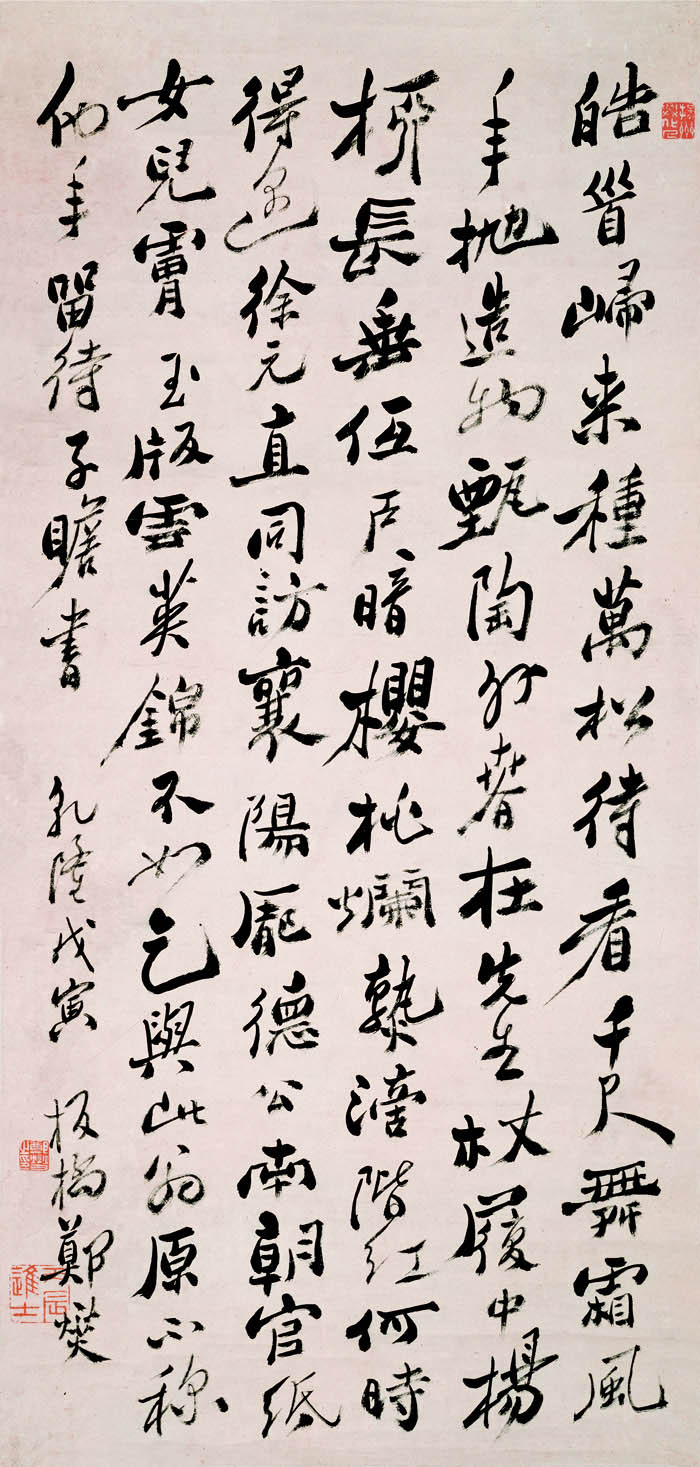 皓首歸来種萬松待看千尺舞霜風
年抛造物甄陶外春在先生杖屨中楊
柳長垂低戶暗櫻桃爛熟滴階紅何時
得遇徐元直同訪襄陽龐德公南朝官紙
女兒膚玉版雲英錦不如乞與此翁原不称
他年留待子瞻書 乾隆戊寅 板橋鄭燮
丙辰進士